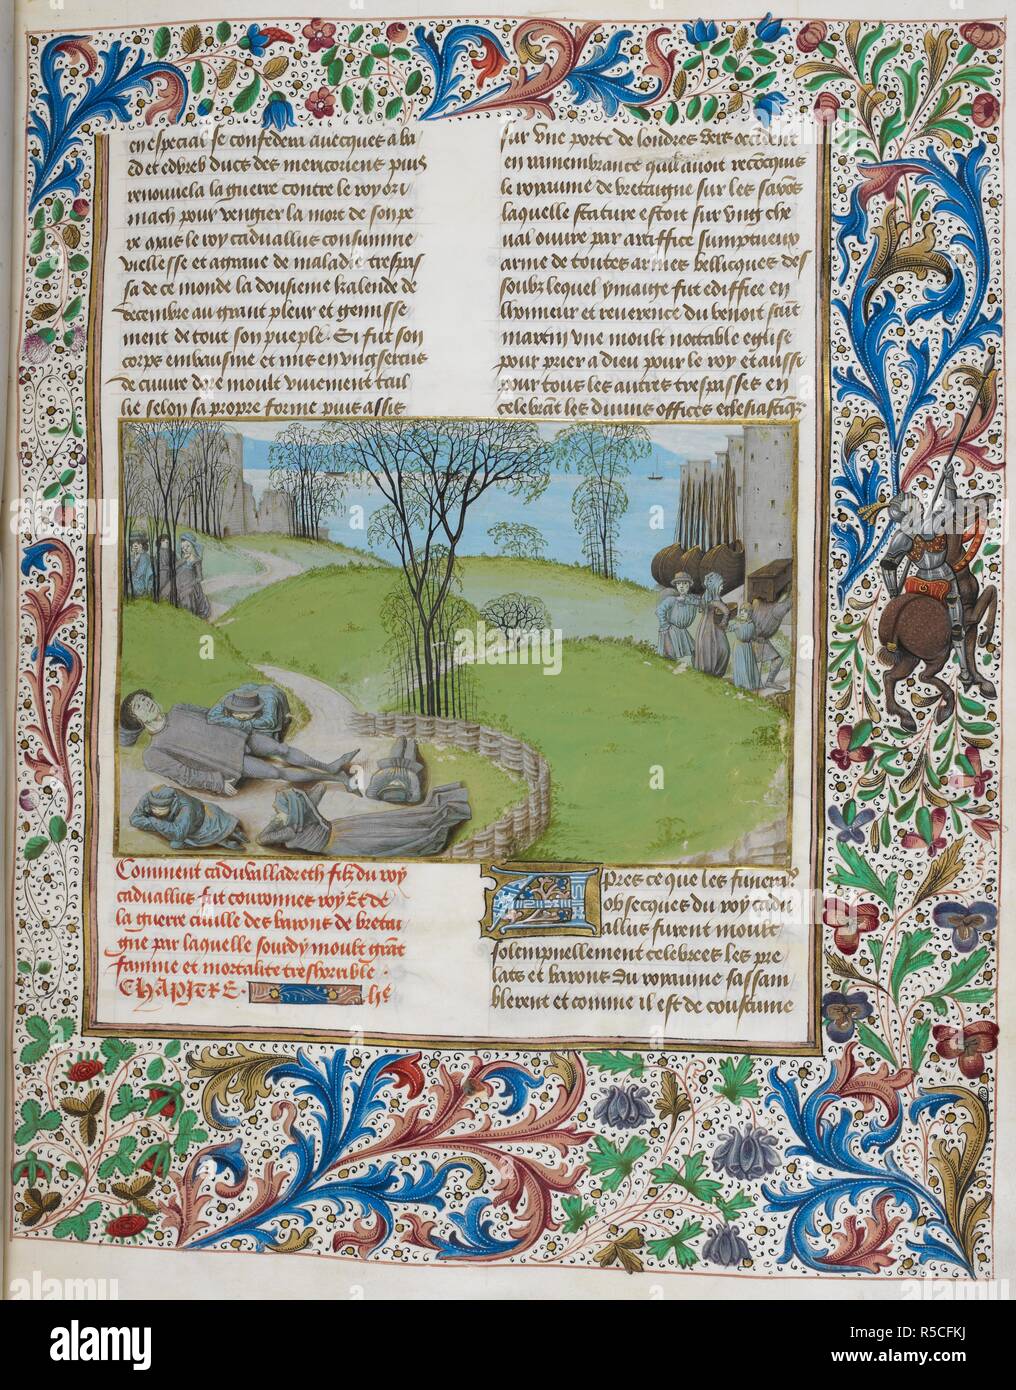 en especial se confedera avecques a la
d et edvreb ducs des mericoriens puis
renouvela la guerre contre le roy ori
mach pour vengier la mort de son pe
re Mais le roy cadvallus consumme
viellesse et agrave de maladie trespas
sa de ce monde la dousieme kalende de
decembre au grant pleur et gemisse
ment de tout son pueple. Si fut son
corps embausme et mis en ung sercus
de cuivre dore moult vivement tail
lie selon sa propre forme puis assis
sur une porte de londres vers occident
en ramembrance quil avoit recoequis
le royaume de bretaigne sur les saxons
laquelle stature estoit sur ung che
val ouvre par artiffice sumptueux
arme de toutes armes bellicques des
soubz lequel ymaige fut ediffiee en
lhonneur et reverence du benoit saint
martin une moult notable eglise
pour prier a dieu pour le roy et aussi
pour tous les autres trespasses en
celebrant les divins offices eglesiasticqs
Comment cadvalladreth filz du roy
cadvallus fut couronnes roy Et de
la guerre civille des barons de breta
gne par laquelle sourdy moult grant
famine et mortalite treshorrible.
CHAPITRE.
Apres ce que les funerqs
obsecques du roy cadv
allus furent moult
solempnellement celebrees les pre
lats et barons du royaume sassam
blerent et comme il est de coustume
alamy
alamy stock photo
R5CFKJ
www.alamy.com